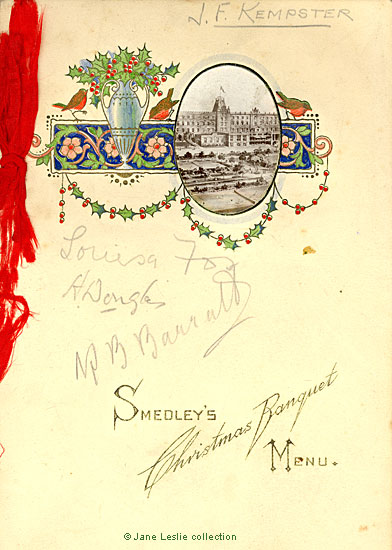 J. F. KEMPSTER
Louisa Foy
A Douglas
M B Barratt
SMEDLEY'S
Christmas Banquet
MENU.
© Jane Leslie collection